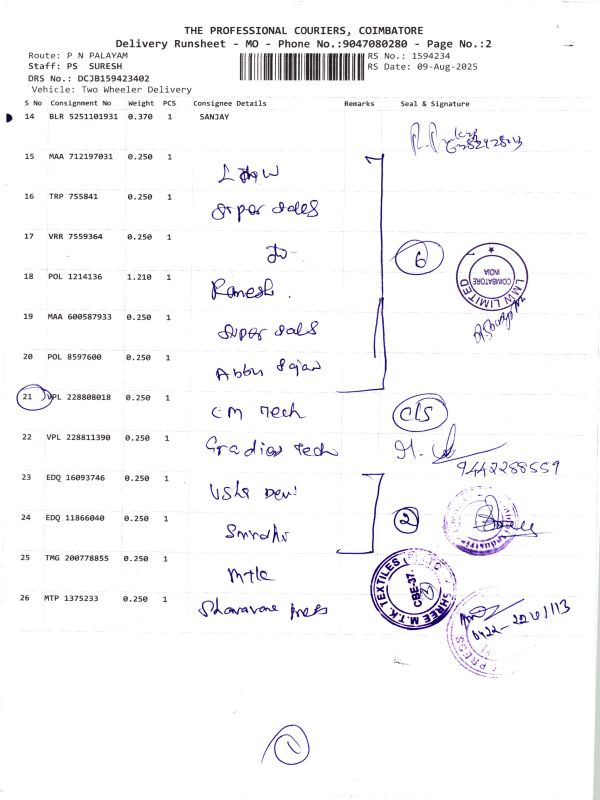 THE PROFESSIONAL COURIERS, COIMBATORE
Delivery Runsheet - MO - Phone No.:9047080280 - Page No.:2
Route: P N PALAYAM
RS No.: 1594234
Staff: PS SURESH
RS Date: 09-Aug-2025
DRS No.: DCJB159423402
Vehicle: Two Wheeler Delivery
S No Consignment No Weight PCS Consignee Details Remarks Seal & Signature
14 BLR 5251101931 0.370 1 SANJAY
15 MAA 712197031 0.250 1
16 TRP 755841 0.250 1 Super Sales
17 VRR 7559364 0.250 1
6
LMW LIMITED
COIMBATORE
INDIA
18 POL 1214136 1.210 1 Ramesh.
19 MAA 600587933 0.250 1 Super Sals
20 POL 8597600 0.250 1 Abbu
21 VPL 228808018 0.250 1 CM Tech C/S
22 VPL 228811390 0.250 1 Tech
9442288559
23 EDQ 16093746 0.250 1 Usha Devi
24 EDQ 11866040 0.250 1 2
25 TMG 200778855 0.250 1 MTK
SHREE M.T.K. TEXTILES
CBE-37.
26 MTP 1375233 0.250 1 Press
PRESS
1